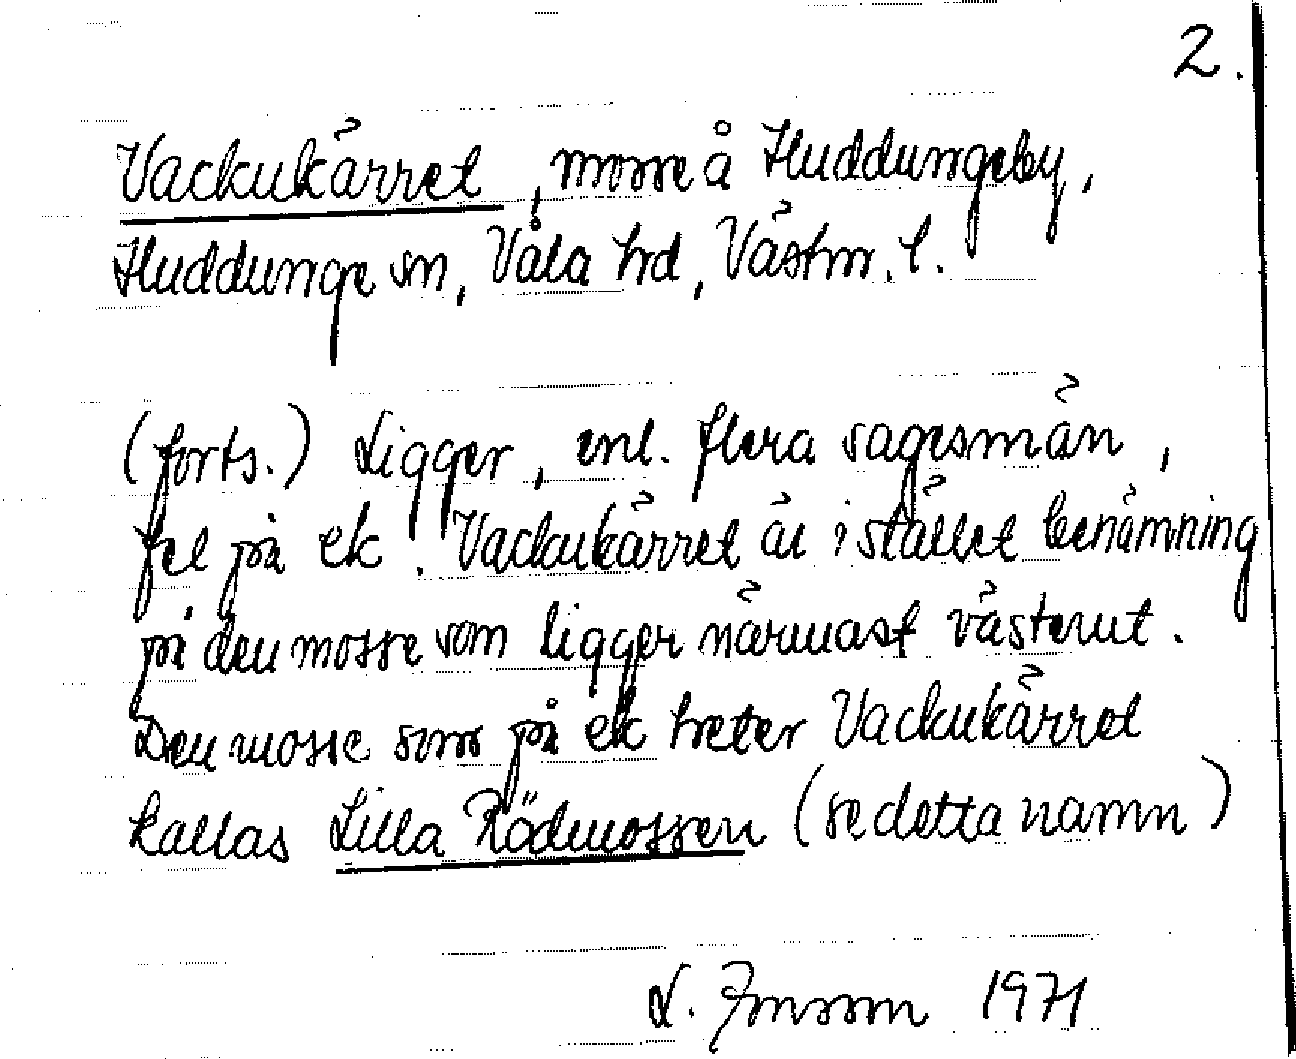 2.
Vackukärret, mosse å Huddungeby,
Huddunge sn, Våla hd, Västm. l.
(forts.) Ligger, enl. flera sagesmän,
fel på ek. Vackukärret är istället benämning
på den mosse som ligger närmast västerut.
Den mosse som på ek heter Vackukärret
kallas Lilla Rödmossen (se detta namn)
L. 1971